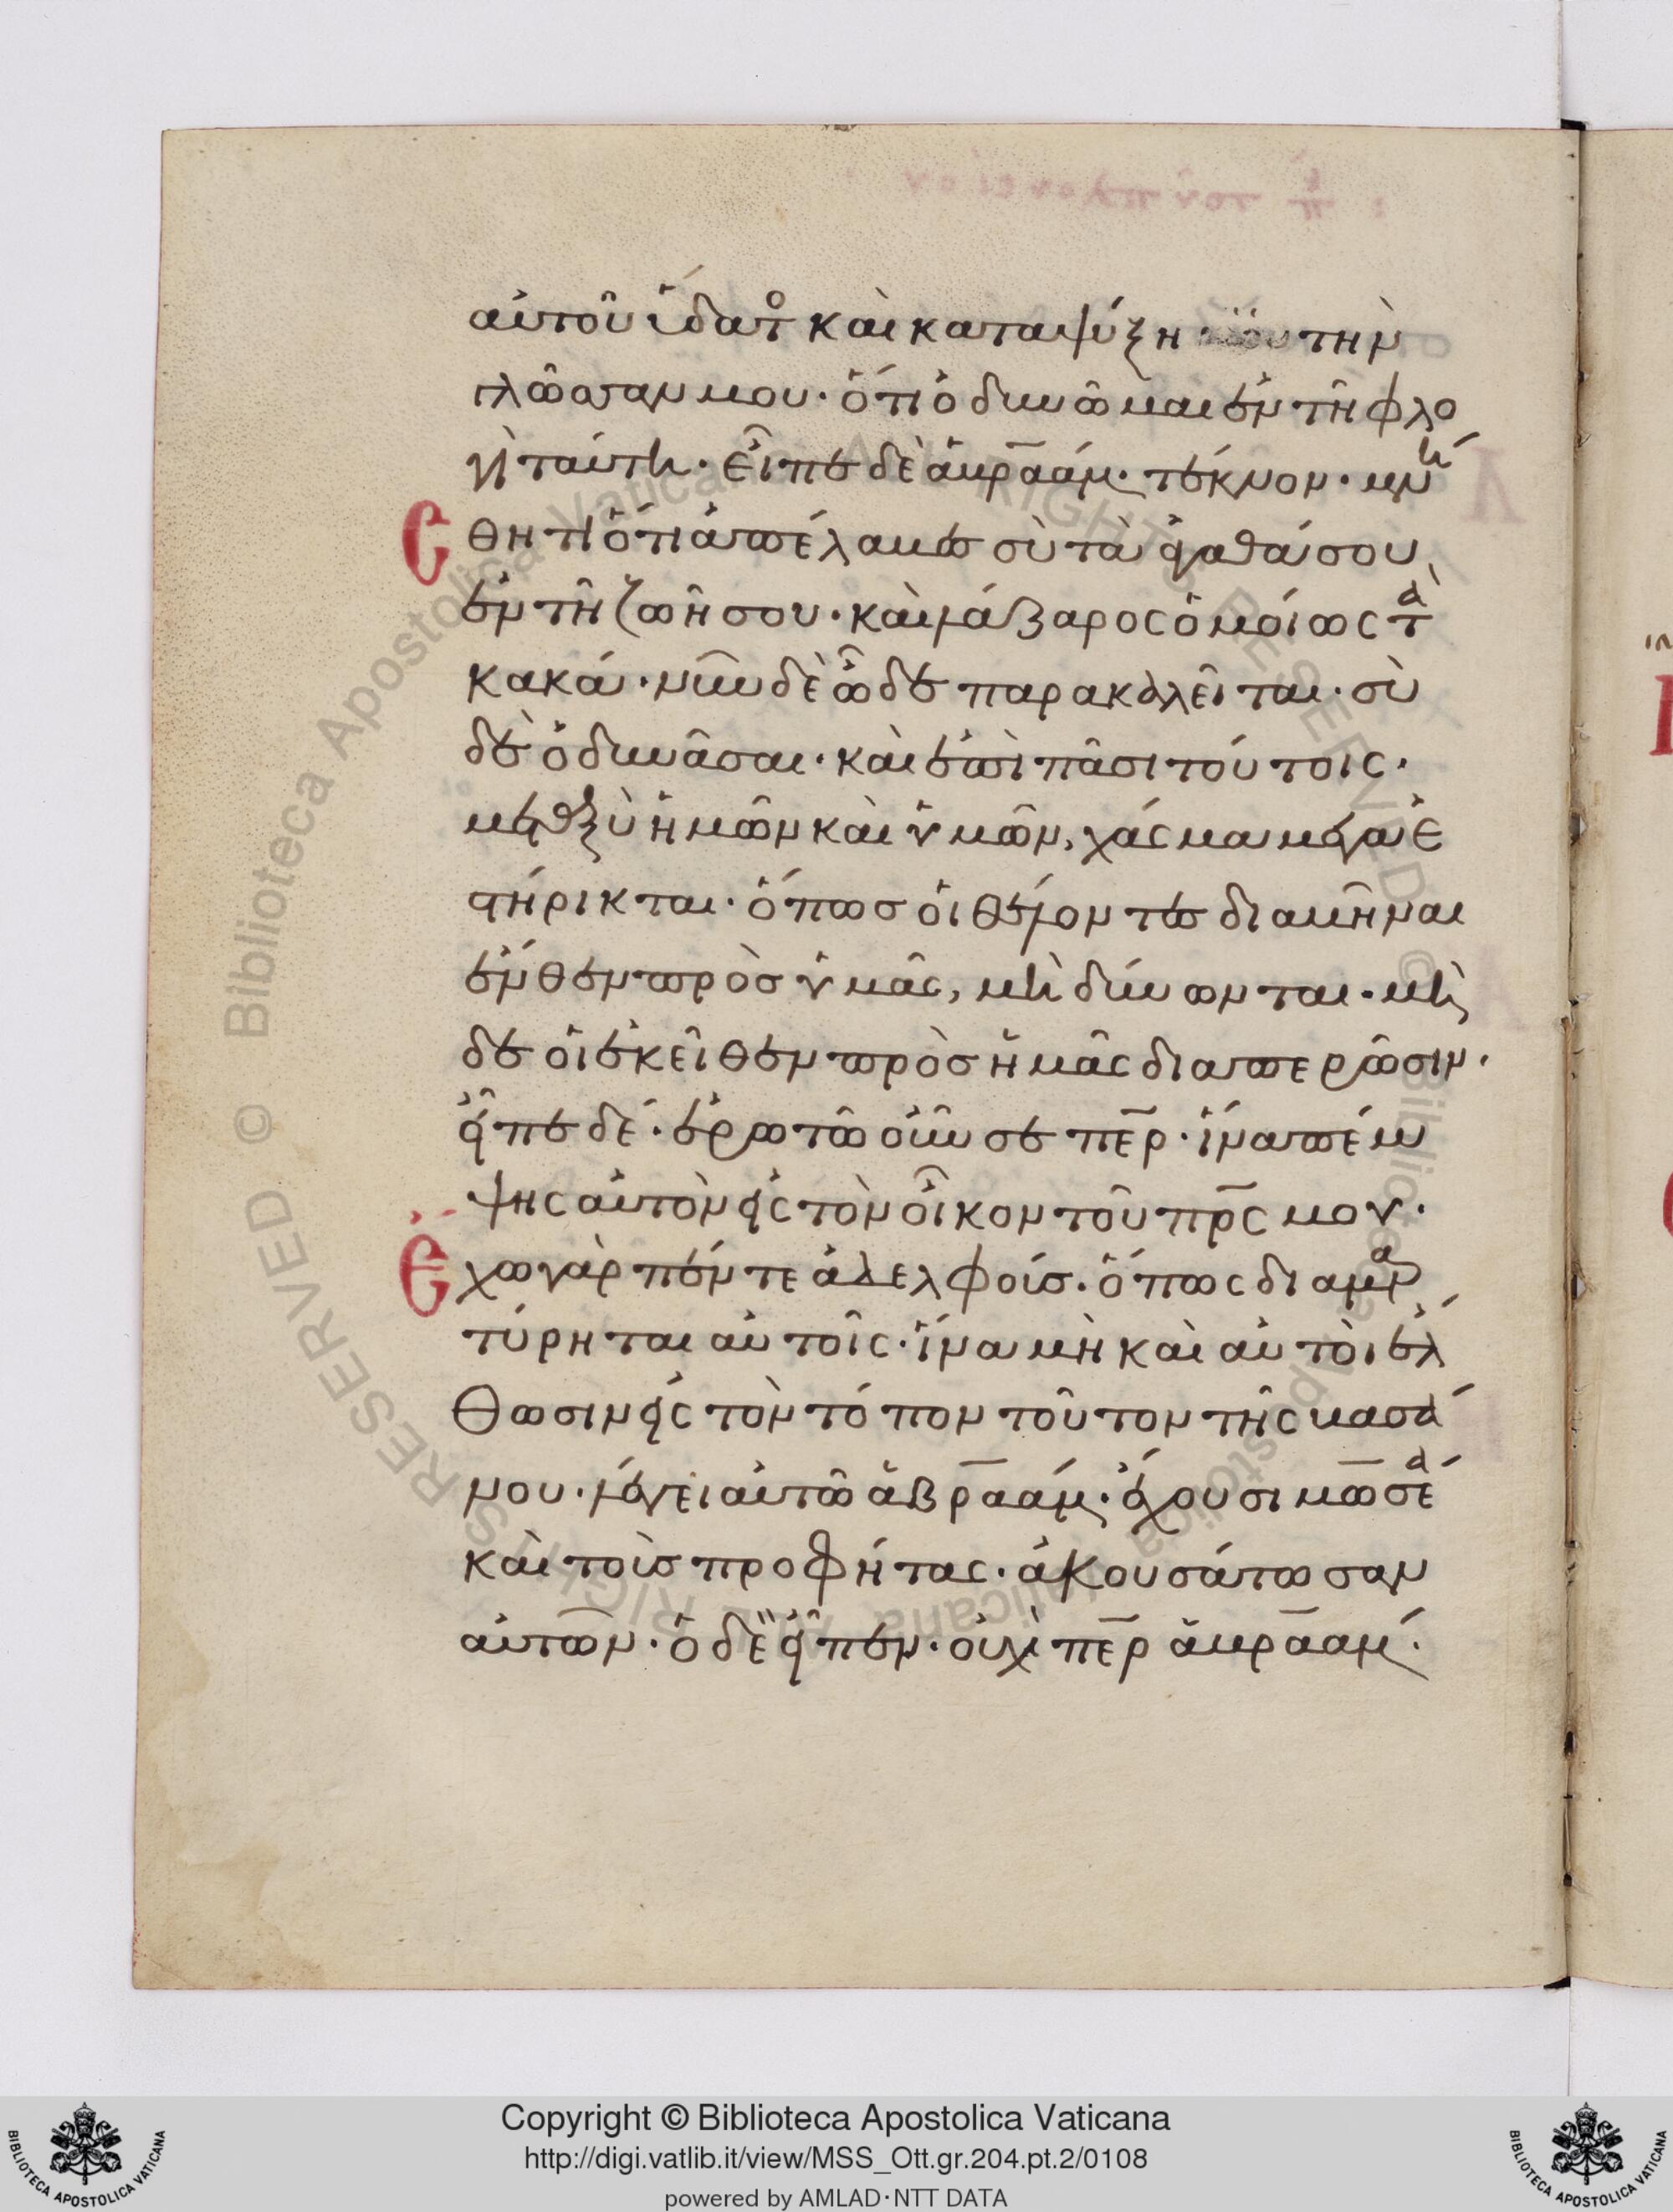 αὐτοῦ ὕδατο καὶ καταψύξη· τὴν
γλῶσσαν μου· ὅτι ὀδυνῶμαι ἐν τῆ φλο
γὶ ταύτη· εἶπε δὲ ἀβρααμ· τέκνον· μνή
Ε θητι ὅτι ἀπέλαβες σὺ τὰ ἀγαθά σου
ἐν τῆ ζωῆ σου· καὶ λάζαρος ὁμοίως τὰ
κακά· νῦν δὲ ὧδε παρακαλεῖται· σὺ
δὲ ὀδυνᾶσαι· καὶ ἐπὶ πᾶσι τούτοις·
μεταξὺ ἡμῶν καὶ ὑμῶν, χάσμα μέγα ἐ
στήρικται· ὅπως οἱ θέλοντες διαβῆναι
ἔνθεν πρὸς ὑμᾶς, μὴ δύνωνται· μὴ
δὲ οἱ ἐκεῖθεν πρὸς ἡμᾶς διαπερῶσιν·
εἶπε δέ· ἐρωτῶ οὖν σε περ· ἵνα πέμ
ψης αὐτὸν εἰς τὸν οἶκον τοῦ πρς μου·
Ε χω γὰρ πέντε ἀδελφούς· ὅπως διαμαρ
τύρηται αὐτοῖς· ἵνα μὴ καὶ αὐτοὶ ἔλ
θωσιν εἰς τὸν τόπον τοῦτον τῆς βασά
νου· λέγει αὐτῶ ἀβρααμ· ἔχουσι μωσέα
καὶ τοὺς προφήτας· ἀκουσάτωσαν
αὐτῶν· ὁ δὲ εἶπεν· οὐχὶ περ ἀβρααμ·
Copyright © Biblioteca Apostolica Vaticana
http://digi.vatlib.it/view/MSS_Ott.gr.204.pt.2/0108
powered by AMLAD·NTT DATA
BIBLIOTECA APOSTOLICA VATICANA
BIBLIOTECA APOSTOLICA VATICANA